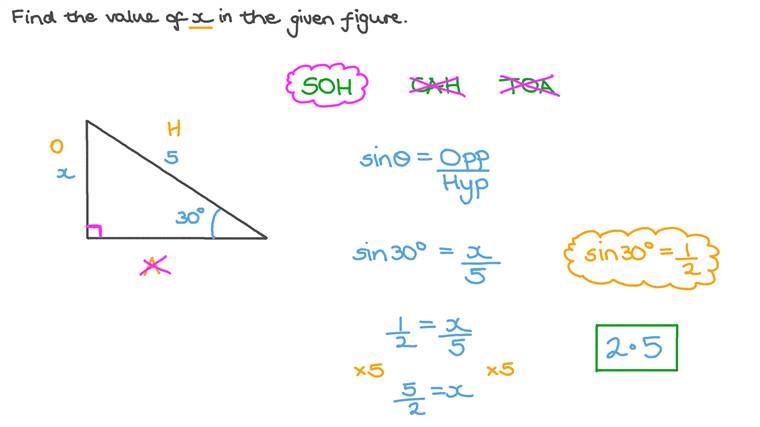 Find the value of x in the given figure.
SOH CAH TOA
O
H
x
5
30°
A
sinθ = Opp/Hyp
sin30° = x/5
sin30° = 1/2
1/2 = x/5
×5 ×5
5/2 = x
2·5